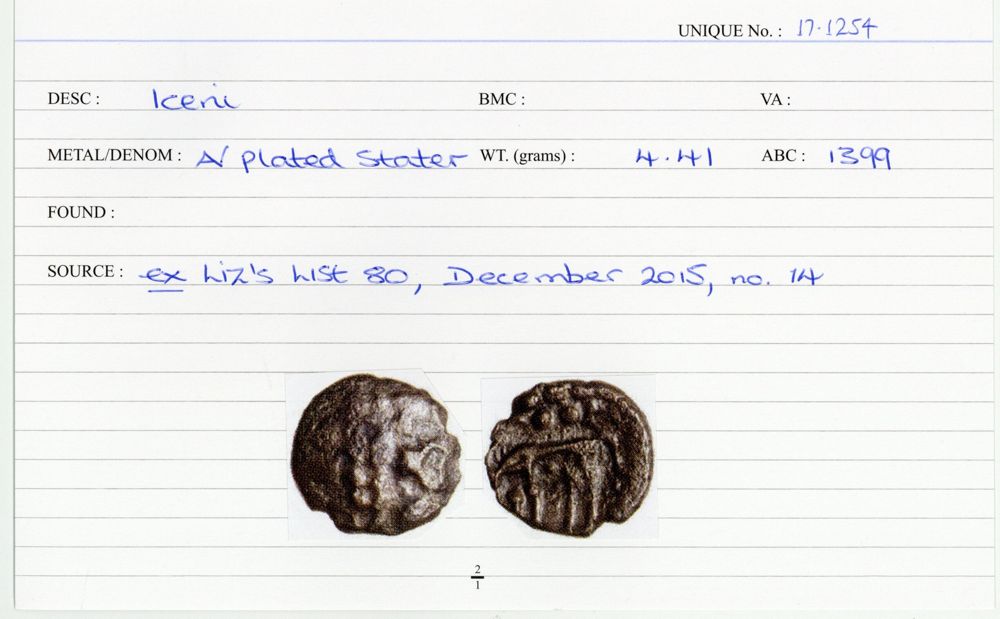 UNIQUE No. : 17.1254
DESC : Iceni BMC : VA :
METAL/DENOM : A/ plated Stater WT. (grams) : 4.41 ABC : 1399
FOUND :
SOURCE : ex Liz's List 80, December 2015, no. 14
2
1